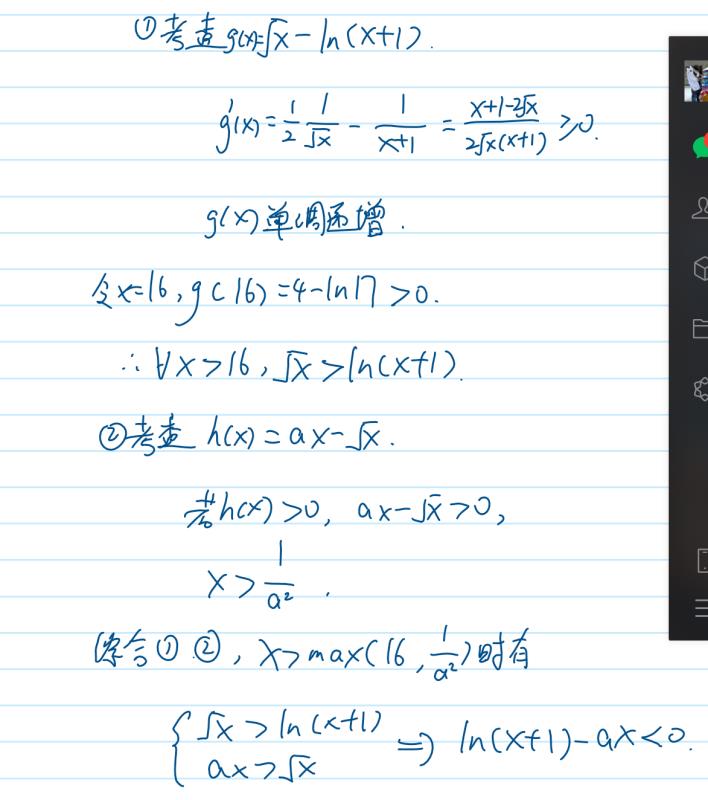 ①考查g(x)=√x-ln(x+1).
g'(x)=1/2 1/√x - 1/(x+1) = (x+1-2√x)/(2√x(x+1)) ≥0.
g(x)单调递增.
令x=16,g(16)=4-ln17>0.
∴∀x>16,√x>ln(x+1).
②考查 h(x)=ax-√x.
若h(x)>0, ax-√x>0,
x>1/a².
综合①②,x>max(16,1/a²)时有
{√x>ln(x+1)
ax>√x ⇒ ln(x+1)-ax<0.